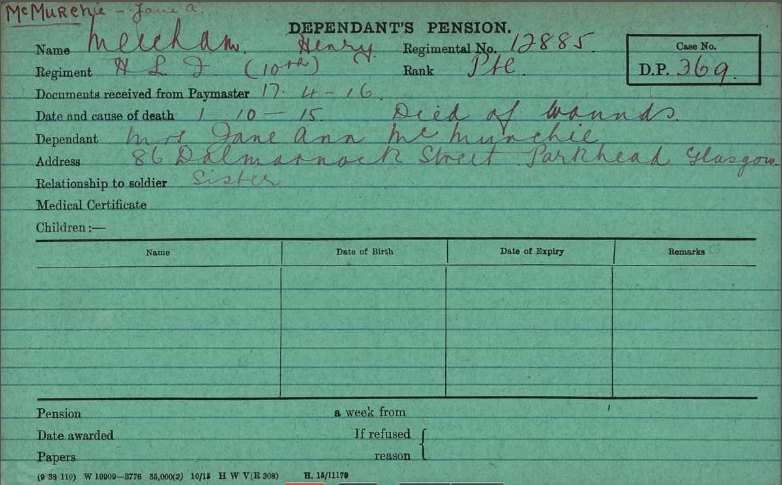 McMurchie - Jane A.
DEPENDANT'S PENSION.
Name Meecham, Henry. Regimental No. 12885.
Regiment H L I (10th) Rank Pte.
Case No.
D.P. 369.
Documents received from Paymaster 17. 4 - 16.
Date and cause of death 1 10 - 15. Died of wounds.
Dependant Mrs Jane Ann McMurchie
Address 86 Dalmarnock Street Parkhead Glasgow
Relationship to soldier Sister
Medical Certificate
Children :—
Name Date of Birth Date of Expiry Remarks
Pension a week from
Date awarded If refused
Papers reason
(9 38 110) W 10909—3776 35,000(2) 10/15 H W V(R 308) H. 15/11179